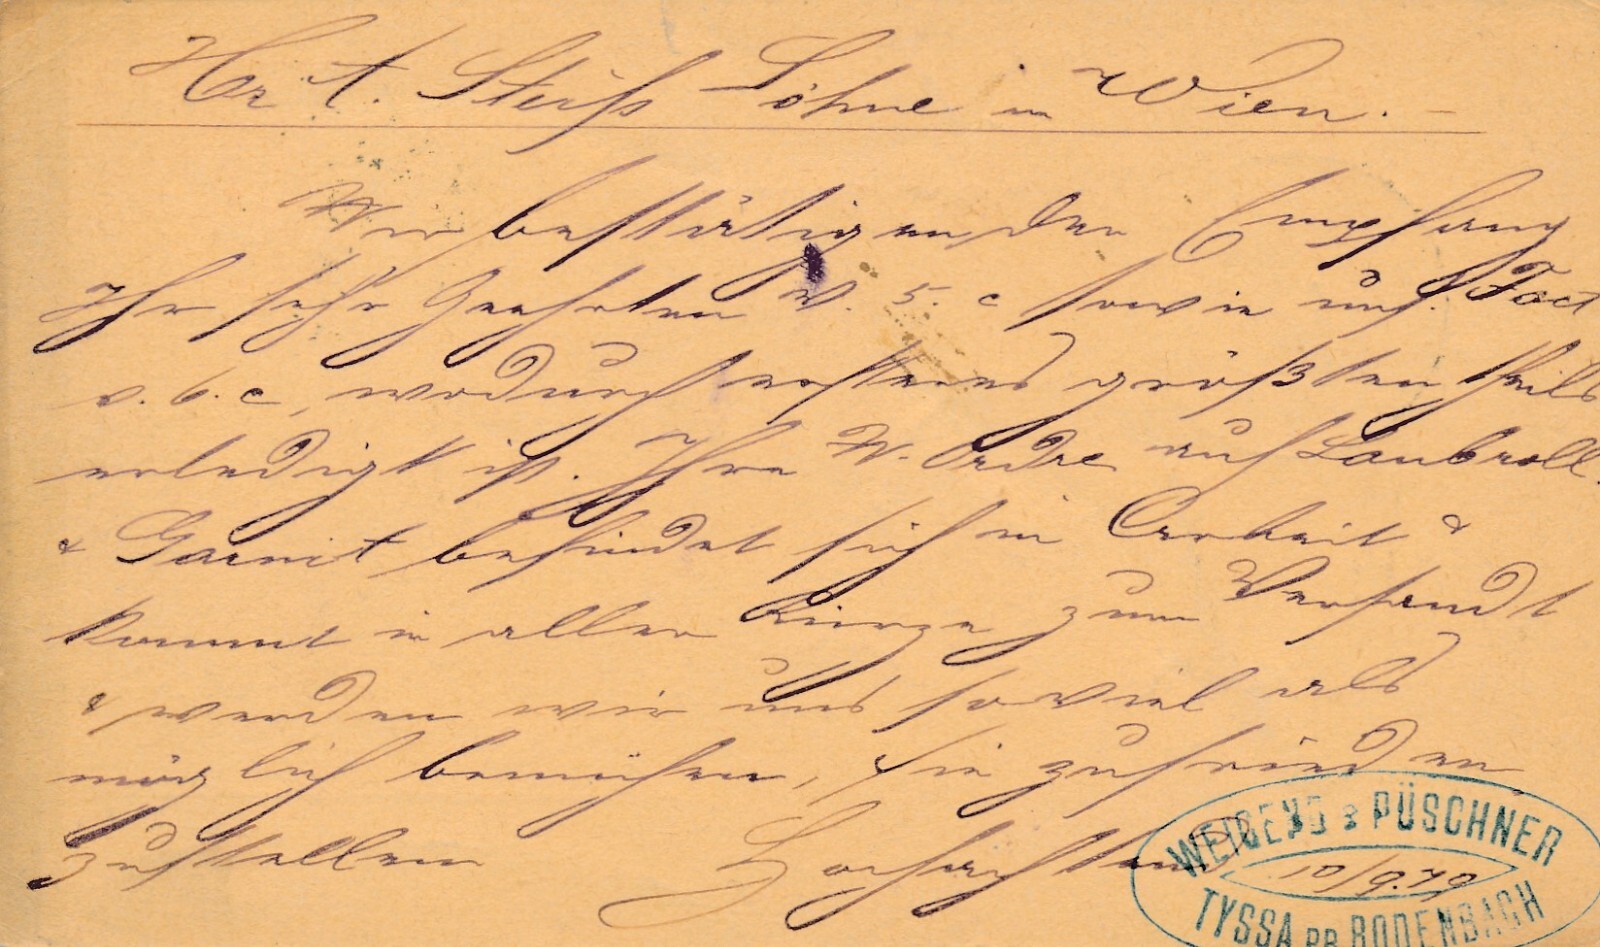 Hrn A. Steifs Söhne in Wien. –
Wir bestätigen den Empfang
Ihr sehr Geehrten v. 5. c sowie uns. Fact
v. 6. c, wodurch ersteres größtentheils
erledigt ist. Ihre W. Ordre auf Laubroll.
& Garnit befindet sich in Arbeit &
kommt in aller Kürze zum Versandt
& werden wir uns soviel als
möglich bemühen, Sie zufrieden
zustellen Hochachtend
WEIGEND & PÜSCHNER
10/9.79
TYSSA PR BODENBACH